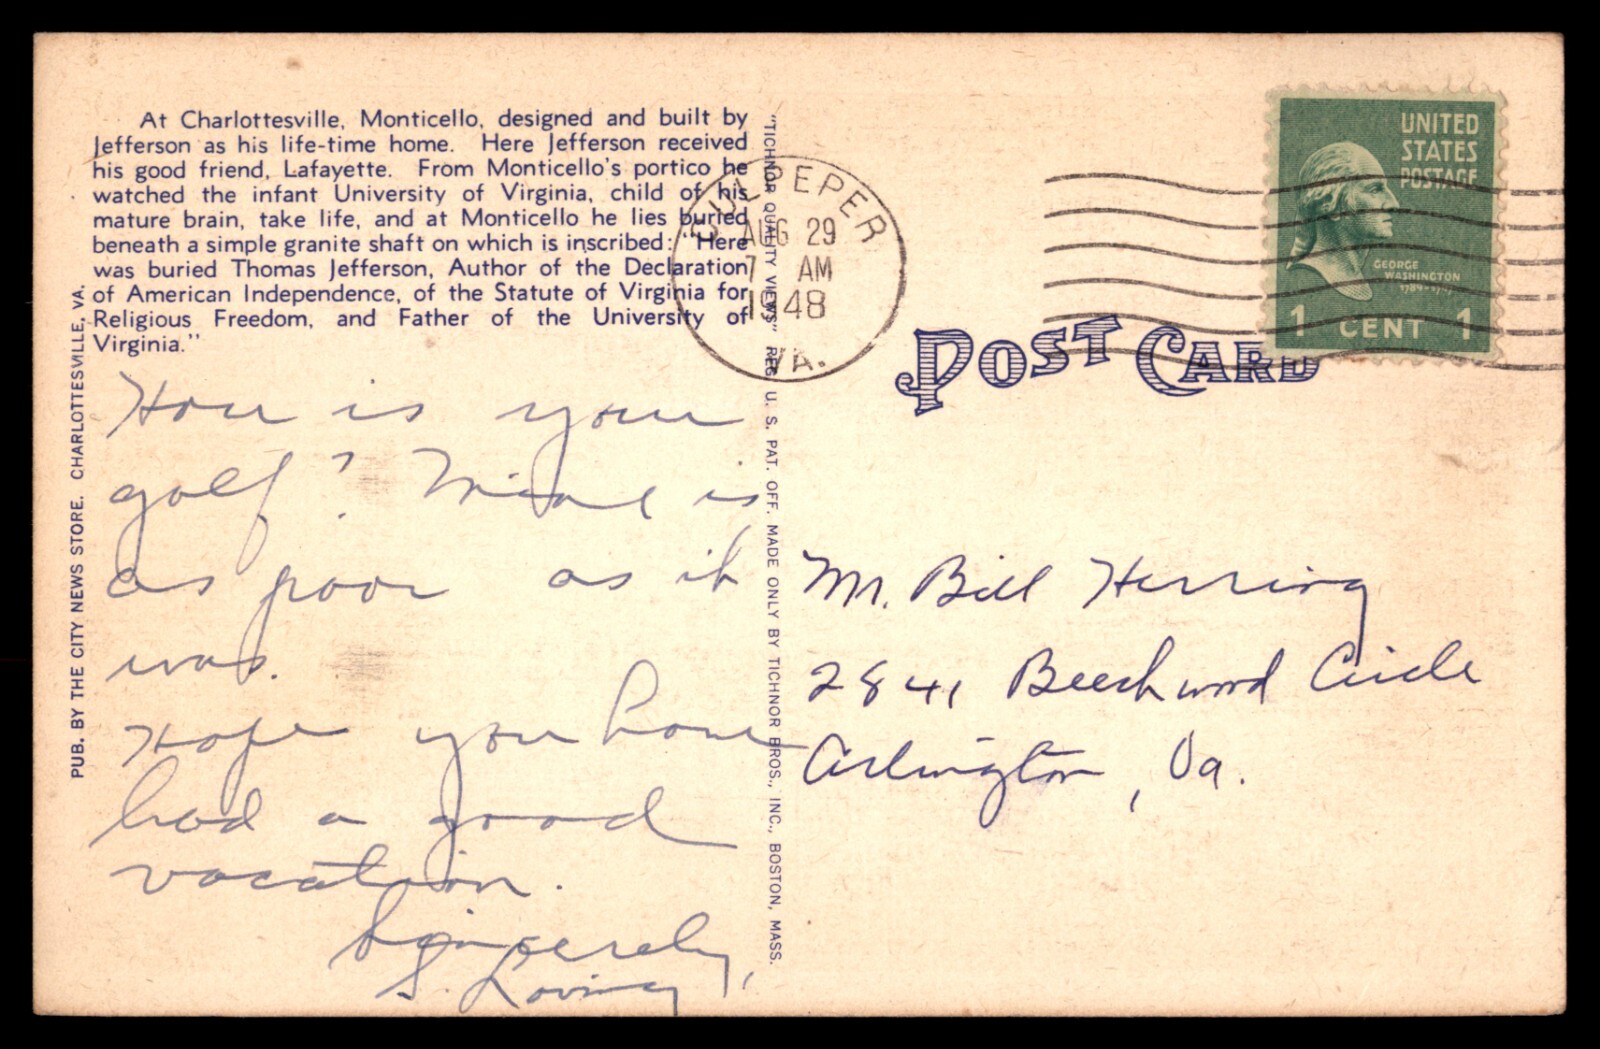 At Charlottesville, Monticello, designed and built by
Jefferson as his life-time home. Here Jefferson received
his good friend, Lafayette. From Monticello's portico he
watched the infant University of Virginia, child of his
mature brain, take life, and at Monticello he lies buried
beneath a simple granite shaft on which is inscribed: "Here
was buried Thomas Jefferson, Author of the Declaration
of American Independence, of the Statute of Virginia for
Religious Freedom, and Father of the University of
Virginia."
PUB. BY THE CITY NEWS STORE. CHARLOTTESVILLE, VA.
How is your
golf? Mine is
as poor as it
was.
Hope you have
had a good
vacation.
Sincerely,
"TICHNOR QUALITY VIEWS" REG. U. S. PAT. OFF. MADE ONLY BY TICHNOR BROS., INC., BOSTON, MASS.
CULPEPER
AUG 29
7 AM
1948
VA.
UNITED
STATES
POSTAGE
GEORGE
WASHINGTON
1789-1797
1 CENT 1
POST CARD
Mr. Bill Herring
2841 Beechwood Circle
Arlington, Va.